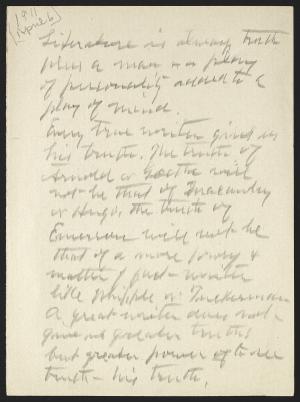 1911
[April 26]
Literature is always truth
plus a man or a play
of personality added to a
play of mind.
Every true writer gives us
his truth. The truth of
Arnold or Goethe will
not be that of Macaulay
or Hugo. The truth of
Emerson will not be
that of a more &
matter of fact writer
like Whipple or Tuckerman
A great writer does not
give us greater truths
but greater power of
truth – his truth.